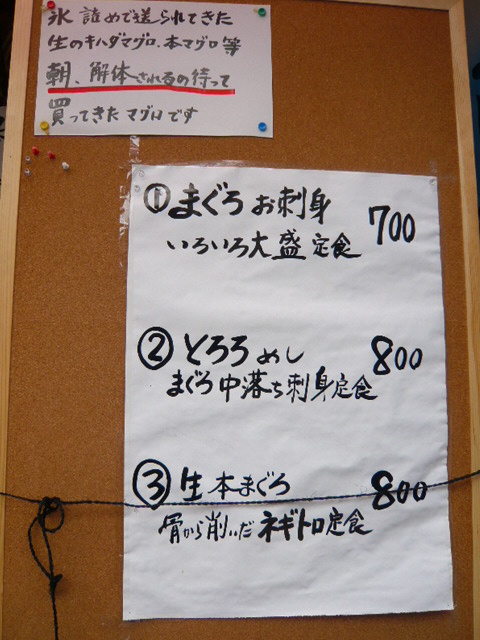 氷詰めで送られてきた
生のキハダマグロ、本マグロ等
朝、解体されるの待って
買ってきたマグロです
① まぐろお刺身 700
いろいろ大盛定食
② とろろめし 800
まぐろ中落ち刺身定食
③ 生本まぐろ 800
骨から削いだネギトロ定食